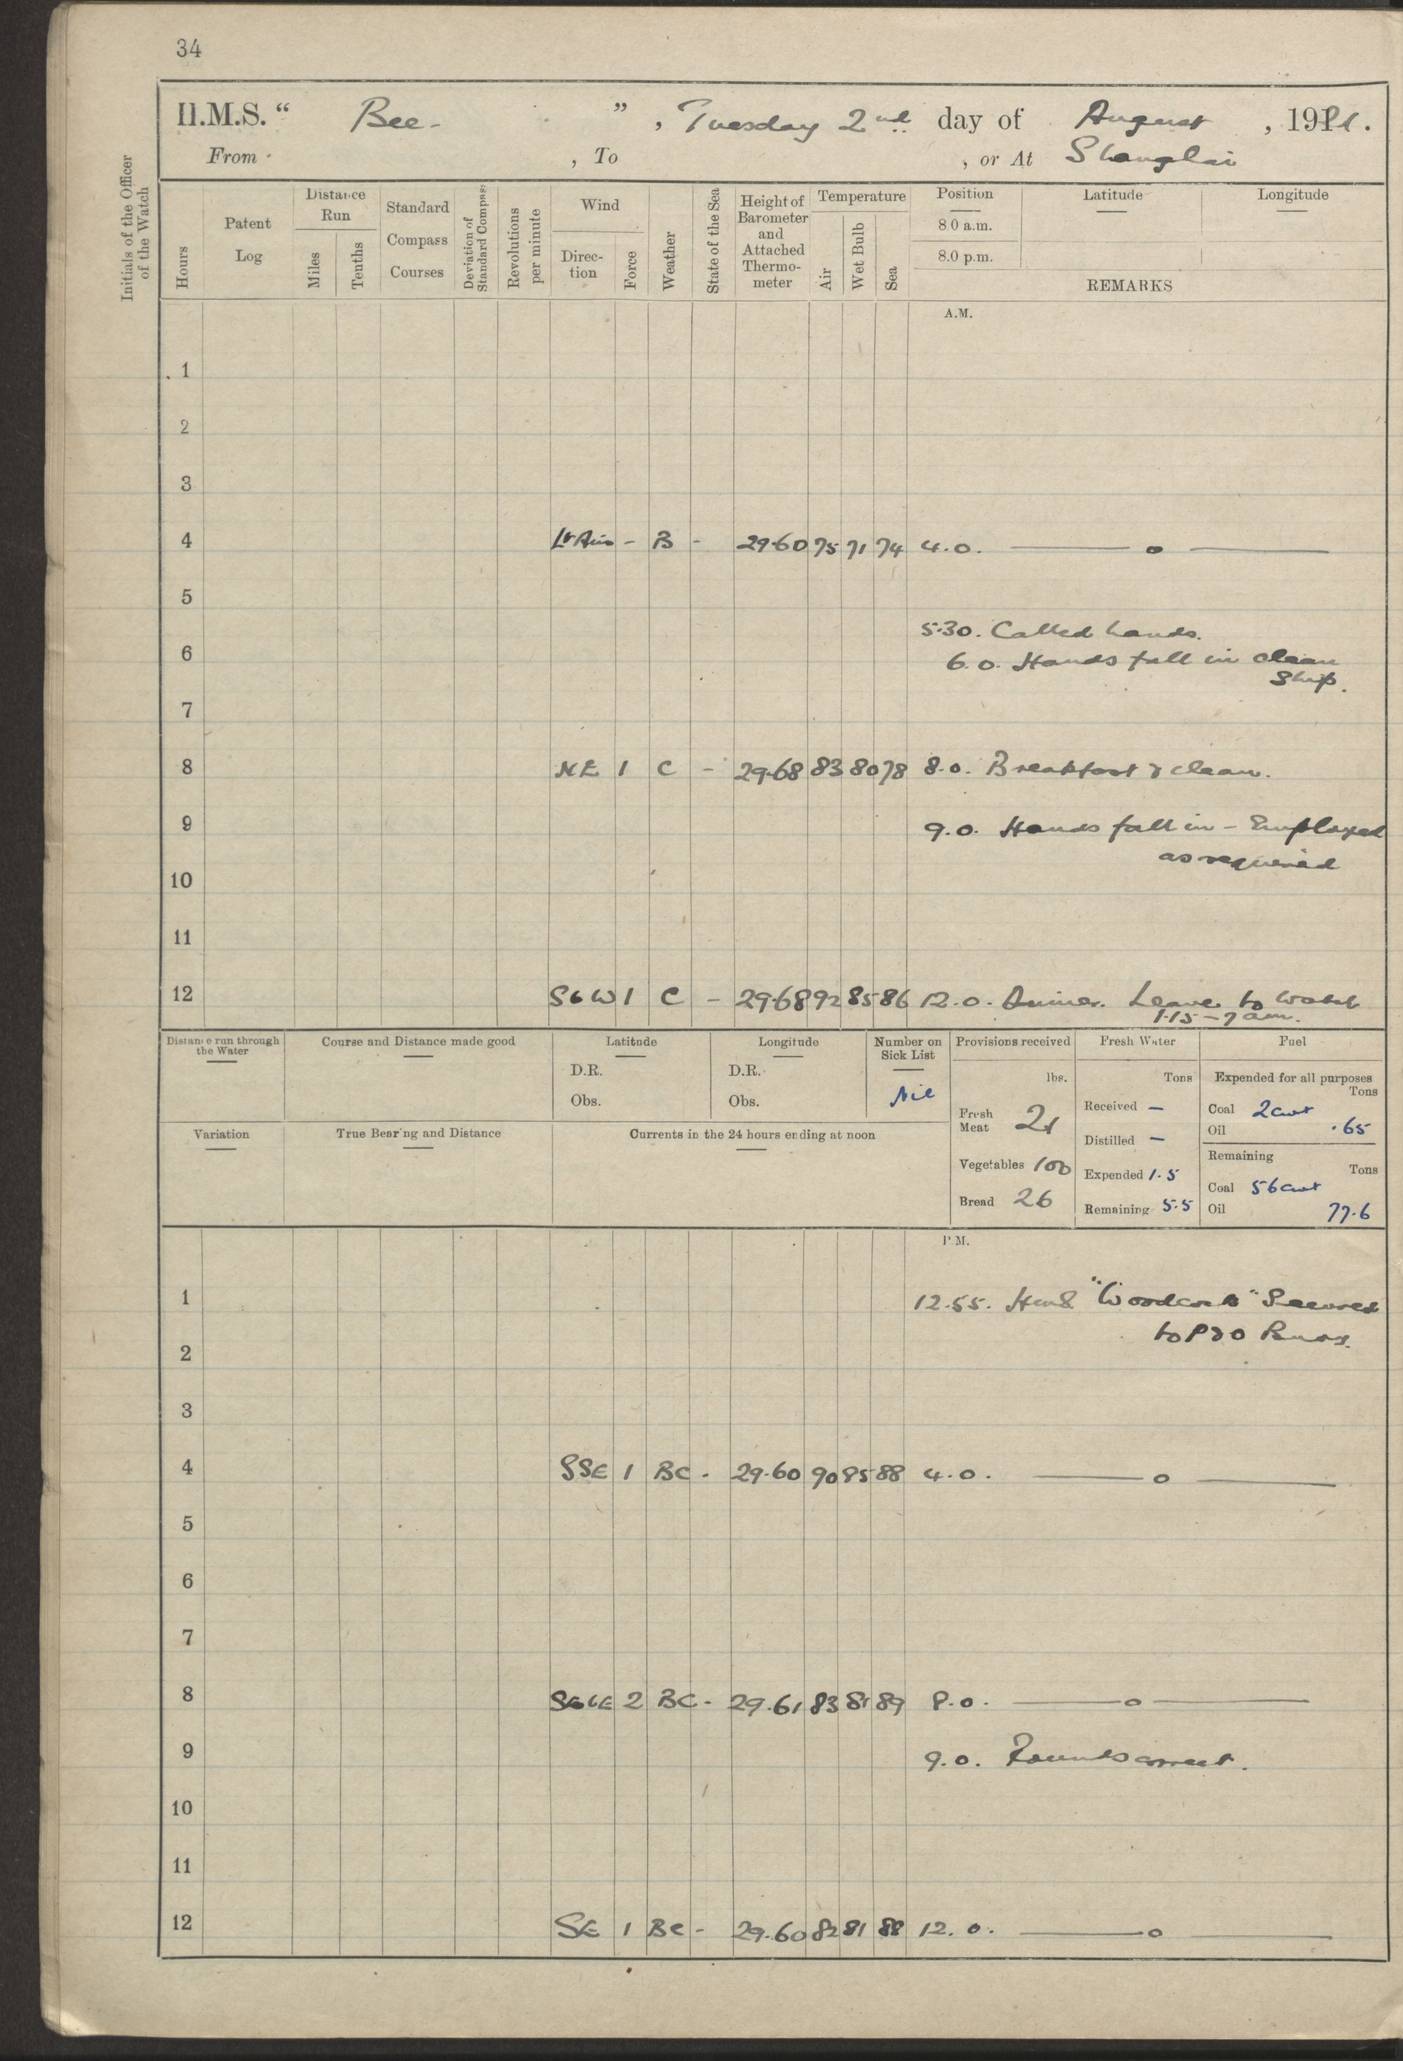 34
H.M.S. “ Bee - ” , Tuesday 2nd day of August , 1921.
From , To , or At Shanghai
Initials of the Officer of the Watch
Hours
Patent Log
Distance Run
Miles
Tenths
Standard Compass Courses
Deviation of Standard Compass
Revolutions per minute
Wind
Direction
Force
Weather
State of the Sea
Height of Barometer and Attached Thermometer
Temperature
Air
Wet Bulb
Sea
Position
8.0 a.m.
8.0 p.m.
Latitude
Longitude
REMARKS
A.M.
1
2
3
4 Lt Airs - B - 29.60 75 71 74 4.0. — o —
5
5.30. Called hands.
6 6.0. Hands fall in clean
ship.
7
8 NE 1 C - 29.68 83 80 78 8.0. Breakfast & clean.
9 9.0. Hands fall in - Employed
as required
10
11
12 SbW 1 C - 29.68 92 85 86 12.0. Dinner. Leave to watch
1.15 - 7 am.
Distance run through the Water
Course and Distance made good
Latitude
D.R.
Obs.
Longitude
D.R.
Obs.
Number on Sick List
Nil
Provisions received
lbs.
Fresh Meat 21
Vegetables 100
Bread 26
Fresh Water
Tons
Received —
Distilled —
Expended 1.5
Remaining 5.5
Fuel
Expended for all purposes
Tons
Coal 2 cwt
Oil .65
Remaining
Tons
Coal 56 cwt
Oil 77.6
Variation
True Bearing and Distance
Currents in the 24 hours ending at noon
P.M.
1 12.55. HMS "Woodcock" Secured
to P&O Buoy.
2
3
4 SSE 1 BC - 29.60 90 85 88 4.0. — o —
5
6
7
8 SEbE 2 BC - 29.61 83 81 89 8.0. — o —
9 9.0. Rounds correct.
10
11
12 SE 1 BC - 29.60 82 81 88 12.0. — o —